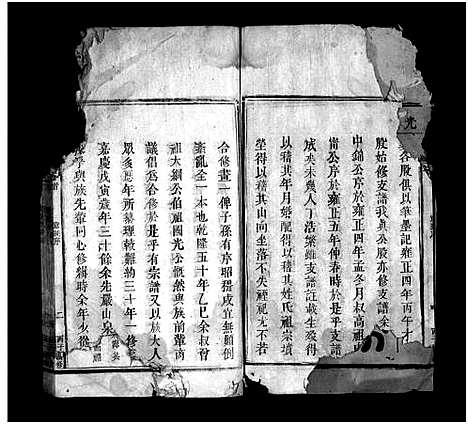 各股俱以筆墨記雍正四年丙午
股始修支譜我真公股亦修支譜余
中錦公序於雍正四年孟冬月叔高祖
公序於雍正五年仲春時於是乎支譜
成矣未幾人丁浩繁雖支譜註載生歿得
以稽其年月婚配得以稽其姓氏祖宗墳
塋得以稽其山向坐落不失經祀尤不若
合修畫一俾子孫有序昭穆成宜無顛倒
紊亂全一本也乾隆五十年乙巳余叔曾
祖大綱公伯祖國光公慨然與族前輩商
議倡為合修於是乎有宗譜又以族大人
眾多歷年所纂理較難約三十年一修
嘉慶戊寅歲年三十餘余先嚴山泉
乎與族先輩同心修緝時余年少從